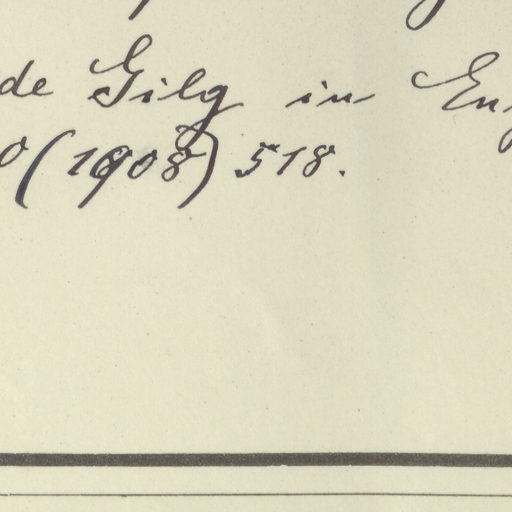 de Gilg in En
0 (1908) 518.